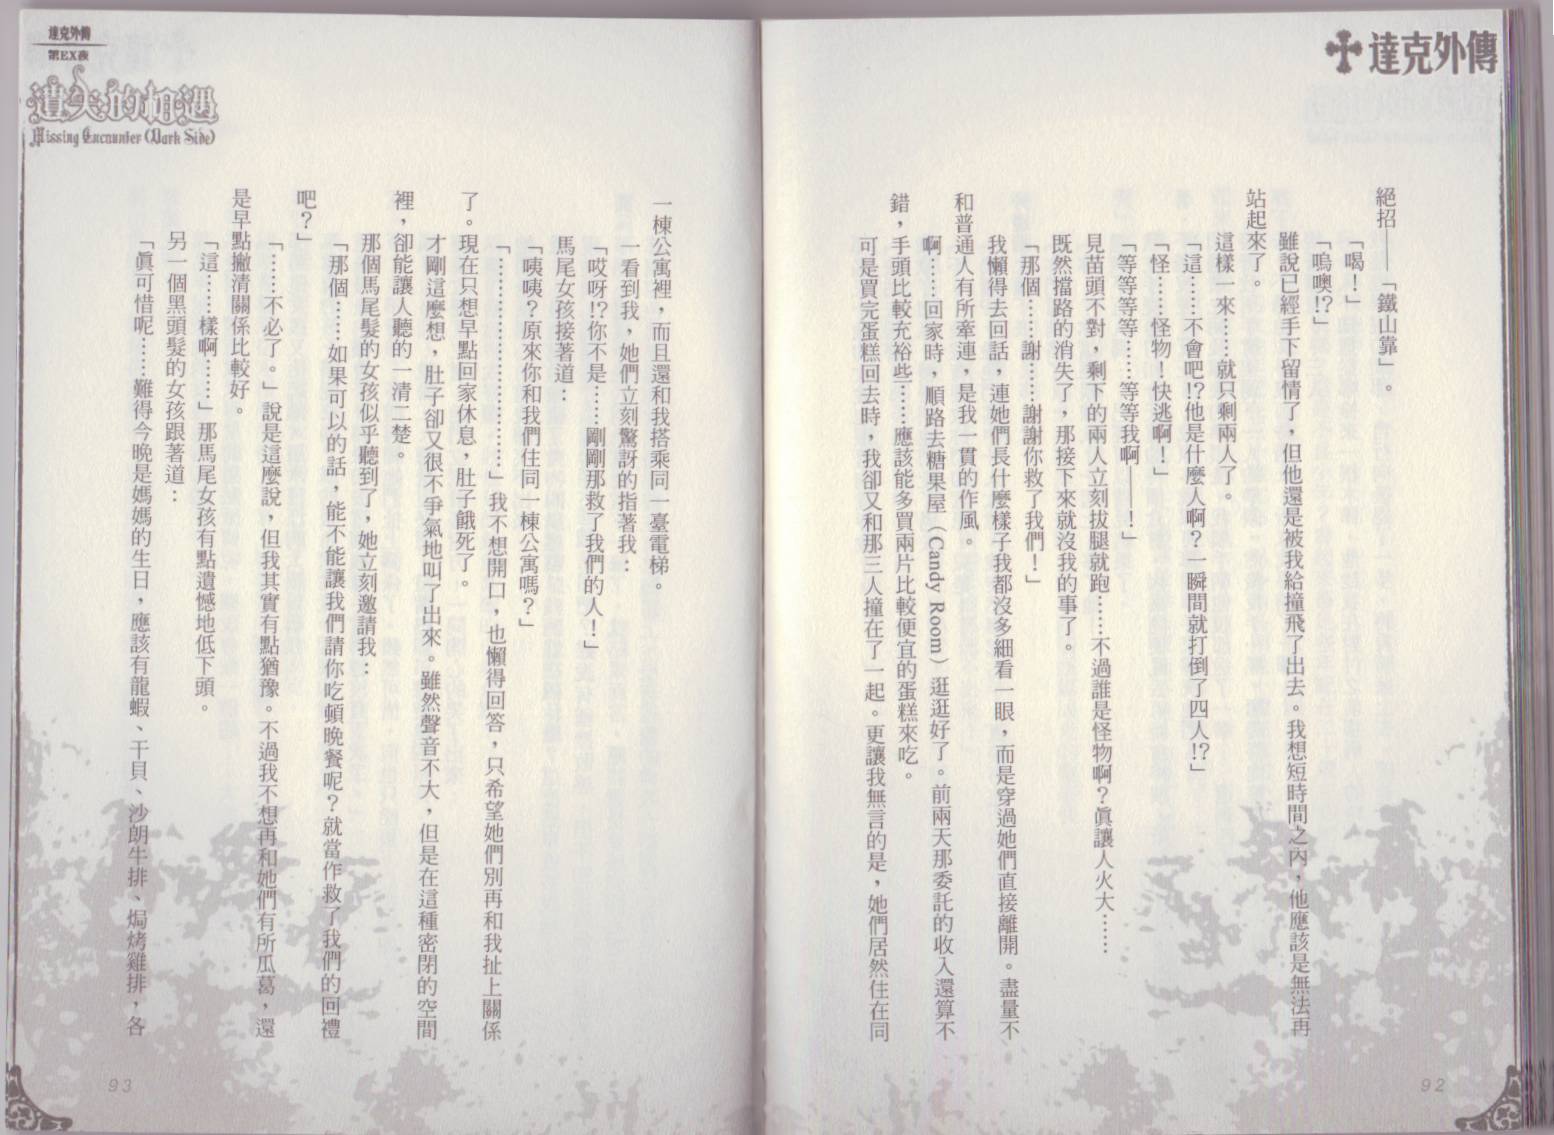 達克外傳
絕招——「鐵山靠」。
「喝！」
「嗚噢!?」
雖說已經手下留情了，但他還是被我給撞飛了出去。我想短時間之內，他應該是無法再
站起來了。
這樣一來……就只剩兩人了。
「這……不會吧!?他是什麼人啊？一瞬間就打倒了四人!?」
「怪……怪物！快逃啊！」
「等等等等……等等我啊——！」
見苗頭不對，剩下的兩人立刻拔腿就跑……不過誰是怪物啊？真讓人火大……
既然擋路的消失了，那接下來就沒我的事了。
「那個……謝……謝謝你救了我們！」
我懶得去回話，連她們長什麼樣子我都沒多細看一眼，而是穿過她們直接離開。盡量不
和普通人有所牽連，是我一貫的作風。
啊……回家時，順路去糖果屋（Candy Room）逛逛好了。前兩天那委託的收入還算不
錯，手頭比較充裕些……應該能多買兩片比較便宜的蛋糕來吃。
可是買完蛋糕回去時，我卻又和那三人撞在了一起。更讓我無言的是，她們居然住在同
92
達克外傳
第EX夜
遺失的相遇
Missing Encounter (Dark Side)
一棟公寓裡，而且還和我搭乘同一臺電梯。
一看到我，她們立刻驚訝的指著我：
「哎呀!?你不是……剛剛那救了我們的人！」
馬尾女孩接著道：
「咦咦？原來你和我們住同一棟公寓嗎？」
「…………………………」我不想開口，也懶得回答，只希望她們別再和我扯上關係
了。現在只想早點回家休息，肚子餓死了。
才剛這麼想，肚子卻又很不爭氣地叫了出來。雖然聲音不大，但是在這種密閉的空間
裡，卻能讓人聽的一清二楚。
那個馬尾髮的女孩似乎聽到了，她立刻邀請我：
「那個……如果可以的話，能不能讓我們請你吃頓晚餐呢？就當作救了我們的回禮
吧？」
「……不必了。」說是這麼說，但我其實有點猶豫。不過我不想再和她們有所瓜葛，還
是早點撇清關係比較好。
「這……樣啊……」那馬尾女孩有點遺憾地低下頭。
另一個黑頭髮的女孩跟著道：
「真可惜呢……難得今晚是媽媽的生日，應該有龍蝦、干貝、沙朗牛排、焗烤雞排，各
93